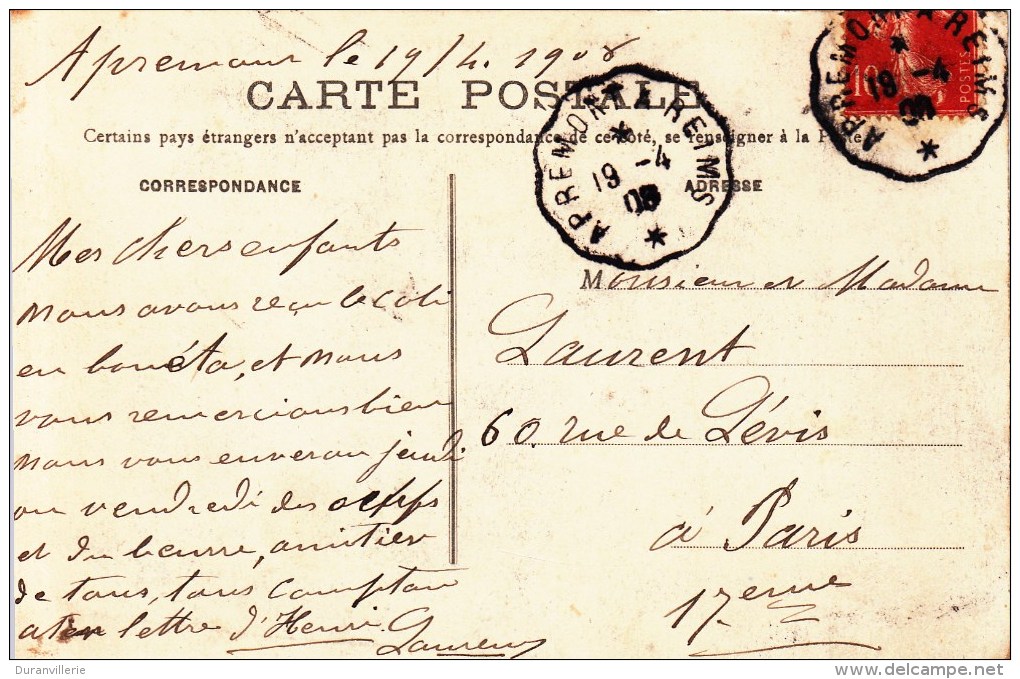 Apremont le 19/4. 1908
CARTE POSTALE
Certains pays étrangers n'acceptant pas la correspondance de ce côté, se renseigner à la Poste
CORRESPONDANCE
Mes chers enfants
nous avons reçu le coli
en bon éta, et nous
vous remercions bien
nous vous enveron jeudi
ou vendredi des oeufs
et du beurre, amitier
de tous, tous compton
lettre d'Henri
Laurent
ADRESSE
Monsieur et Madame
Laurent
60. rue de Lévis
à Paris
17eme
APREMONT A REIMS
19 -4
08
APREMONT A REIMS
19 -4
10
POSTES
Duranvillerie
www.delcampe.net